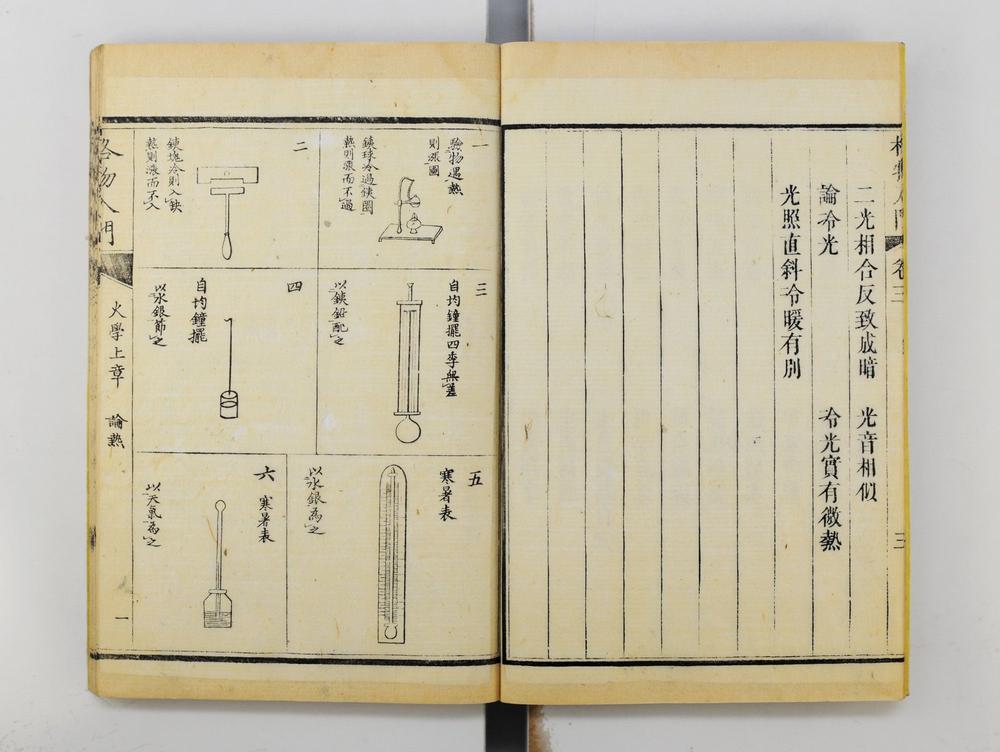 格物入門 卷三 三
二光相合反致成暗 光音相似
論冷光 冷光實有微熱
光照直斜冷暖有別
一 驗物遇熱
則漲圖
鐵球冷過鐵圈
熱則漲而不過
二
鐵塊冷則入缺
熱則漲而不入
三 自均鐘擺四季無差
以鐵鉛配之
四 自均鐘擺
以水銀節之
五 寒暑表
以水銀為之
六 寒暑表
以天氣為之
格物入門 火學上章 論熱 一